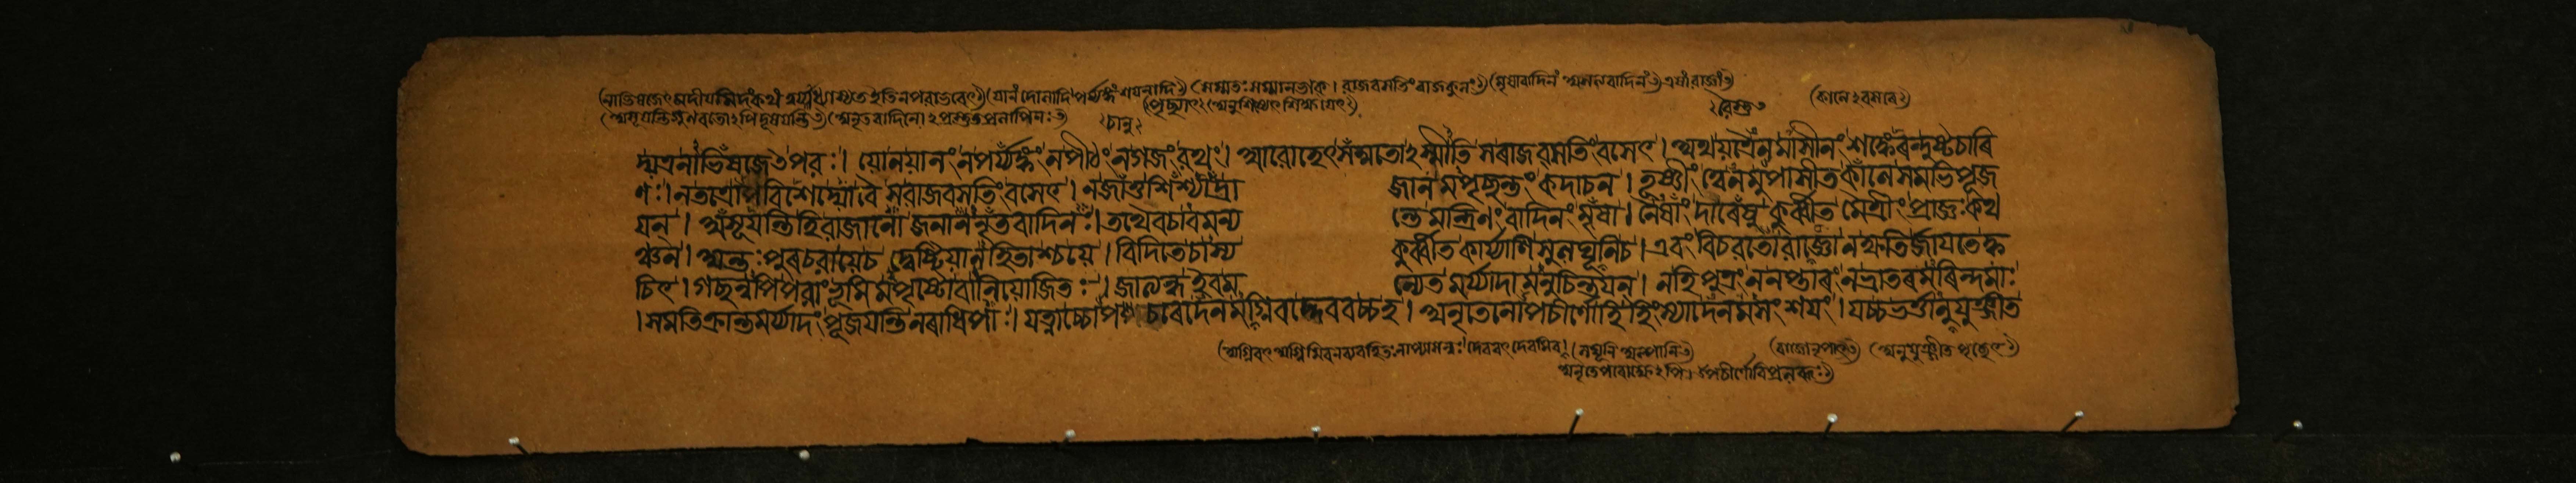 (নাভিষজেৎ মদীয়মিদং কথং ইতি ন পরাভবেৎ) (যানং দোলাদি পর্য্যঙ্কং শয়নাদি) (সম্মতঃ সম্মানভাক্। রাজবসতিং রাজকুলং) (মৃষাবাদিনং অসত্যবাদিনং) এষাং রাজ্ঞাং)
(অসূয়ন্তি গুণবতোঽপি দূষয়ন্তি) (অনৃতবাদিনোঽপ্রস্তুতপ্রলাপিনঃ) (পৃচ্ছ্যাৎ) (অনুশিষ্যেৎ শিক্ষয়েৎ) (কালেঽবসরে)
চানু
দ্যত্রনাভিষজেৎপরঃ। যোনযানংনপর্য্যঙ্কংনপীঠংনগজংরথং। আরোহেৎসংমতোঽস্মীতি সরাজবসতিংবসেৎ। অথযত্রৈনমাসীনং শঙ্কেরন্দুষ্টচারি
ণঃ। নতত্রোপবিশেদ্যোবৈ সরাজবসতিংবসেৎ। নজাতুশিষ্যাদ্রা জানমপৃচ্ছন্তং কদাচন। তূষ্ণীং ত্বেনমুপাসীত কালেসমভিপূজ
যন্। অসূযন্তিহিরাজানো জনাননৃতবাদিনঃ। তথৈবচাবমন্য ন্তে মন্ত্রিণং বাদিনং মৃষা। নৈষাং দারেষু কুর্ব্বীত মৈত্রীং প্রাজ্ঞঃ কথ
ঞ্চন। অন্তঃপুরচরাযেচ দ্বেষ্টিযানহিতাশ্চযে। বিদিতেচাস্য কুর্ব্বীত কার্য্যাণিসুলঘূনিচ। এবং বিচরতোরাজ্ঞো নক্ষতির্জাযতেক্ব
চিৎ। গচ্ছন্নপিপরাংভূমিমপৃষ্টোবানিযোজিতঃ। জাত্যন্ধইবম ন্যেত মর্য্যাদামনুচিন্তযন্। নহিপুত্রং ননপ্তারং নভ্রাতরমরিন্দমাঃ
।সমতিক্রান্তমর্য্যাদং পূজযন্তিনরাধিপাঃ। যত্নাচ্চোপচরেদেনমগ্নিবদ্দেববচ্চহ। অনৃতেনোপচীর্ণোহি হিংস্যাদেনমসংশযং। যচ্চভর্ত্তানুযুঞ্জীত
(অগ্নিবৎ দেববৎ দেবমিব) (লঘূনি অল্পানি) (অনুযুঞ্জীত পৃচ্ছেৎ)